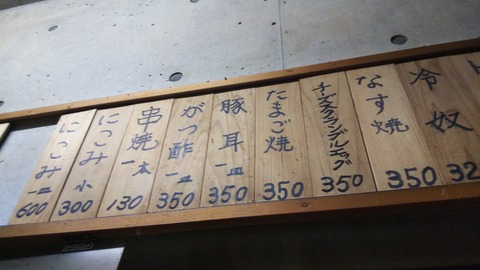 冷奴
32
なす焼
350
チーズスクランブルエッグ
350
たまご焼
350
豚耳一皿
350
がつ酢一皿
350
串焼一本
130
にこみ小
300
にこみ一皿
600